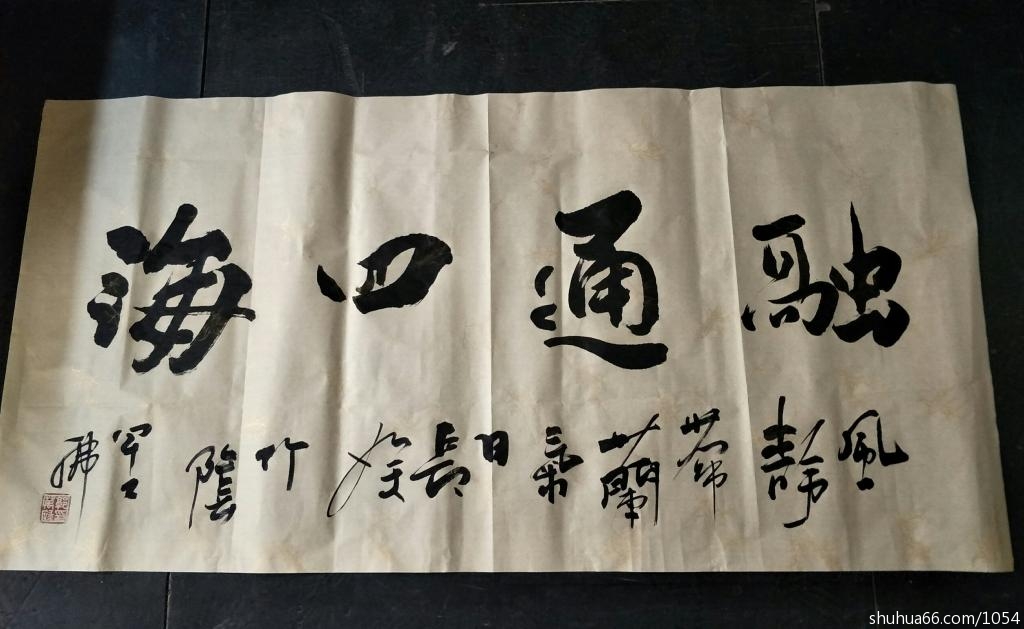 融通四海
風靜帶蘭氣日長
竹陰
shuhua66.com/1054